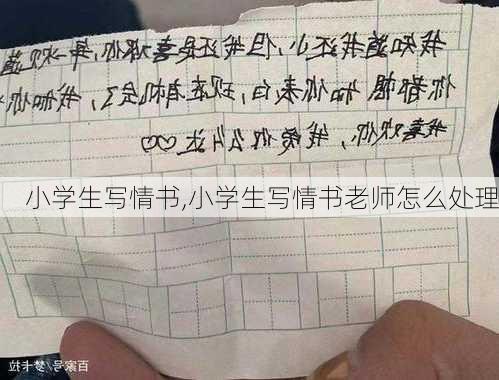 我知道我还小,但我还是喜欢你,每一次遇
你都想和你表白,现在有机会了,我
喜欢你,我爱你么么达♡♡
小学生写情书,小学生写情书老师怎么处理
百家号/梦卡拉